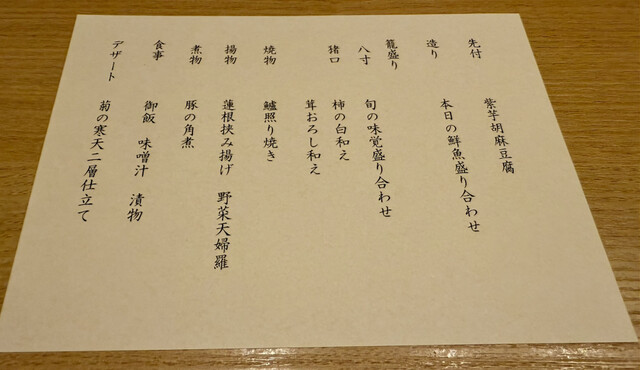 先付
紫芋胡麻豆腐
造り
本日の鮮魚盛り合わせ
籠盛り
八寸
旬の味覚盛り合わせ
猪口
柿の白和え
茸おろし和え
焼物
鱸照り焼き
揚物
蓮根挟み揚げ 野菜天婦羅
煮物
豚の角煮
食事
御飯 味噌汁 漬物
デザート
菊の寒天二層仕立て